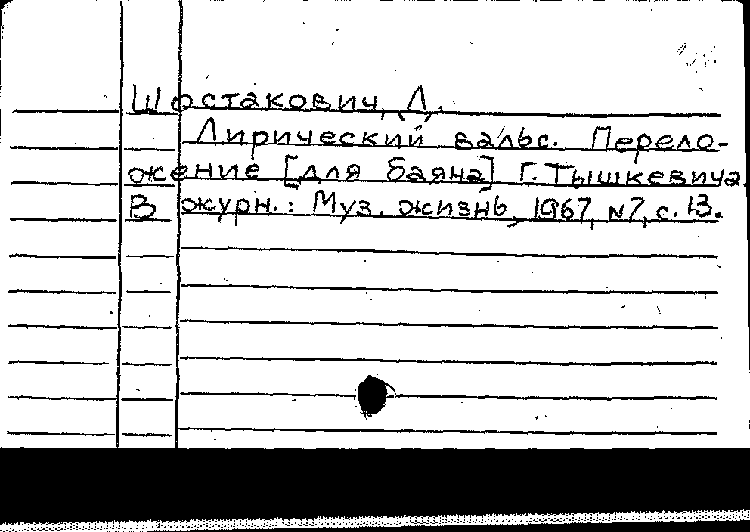 Шостакович, Д.
Лирический вальс. Перело-
жение [для баяна] Г. Тышкевича.
В журн.: Муз. жизнь, 1967, №7, с. 13.